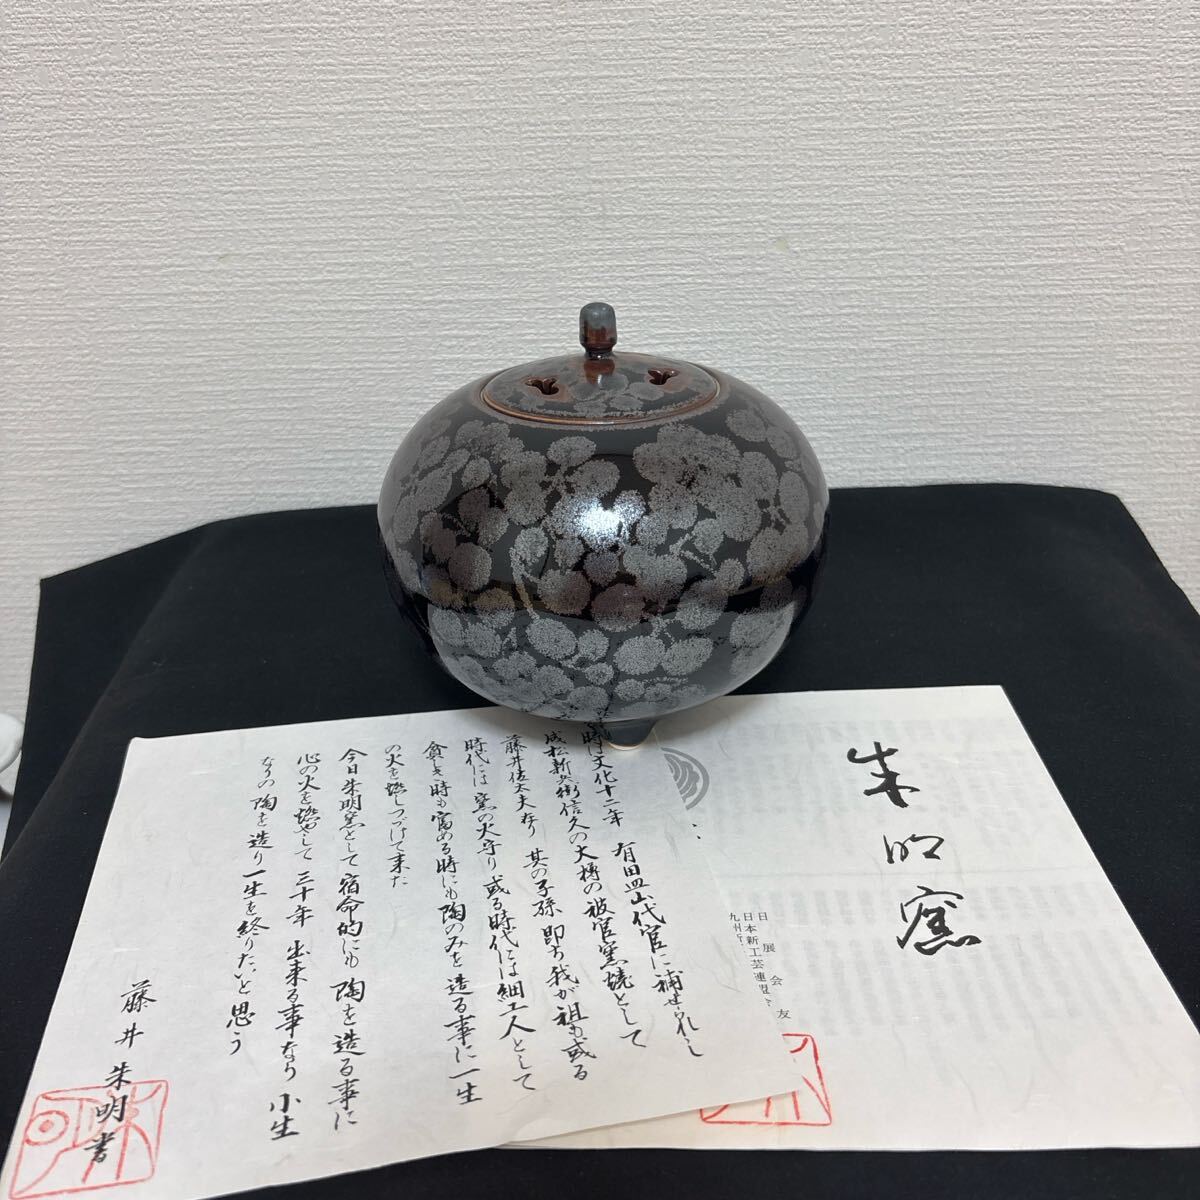 朱明窯
日展会友
日本新工芸連盟会
九州
時は文化十二年 有田皿山代官に補せられし
成松新兵衛信久の大樽の被官窯焼として
藤井佐太夫存り 其の子孫即ち我が祖も或る
時代には窯の火守り或る時代には細工人として
貧しき時も富める時にも陶のみを造る事に一生
の火を燃しつづけて来た
今日朱明窯として宿命的にも陶を造る事に
心の火を燃やして三十年 出来る事なり小生
なりの陶を造り一生を終りたいと思う
藤井朱明書